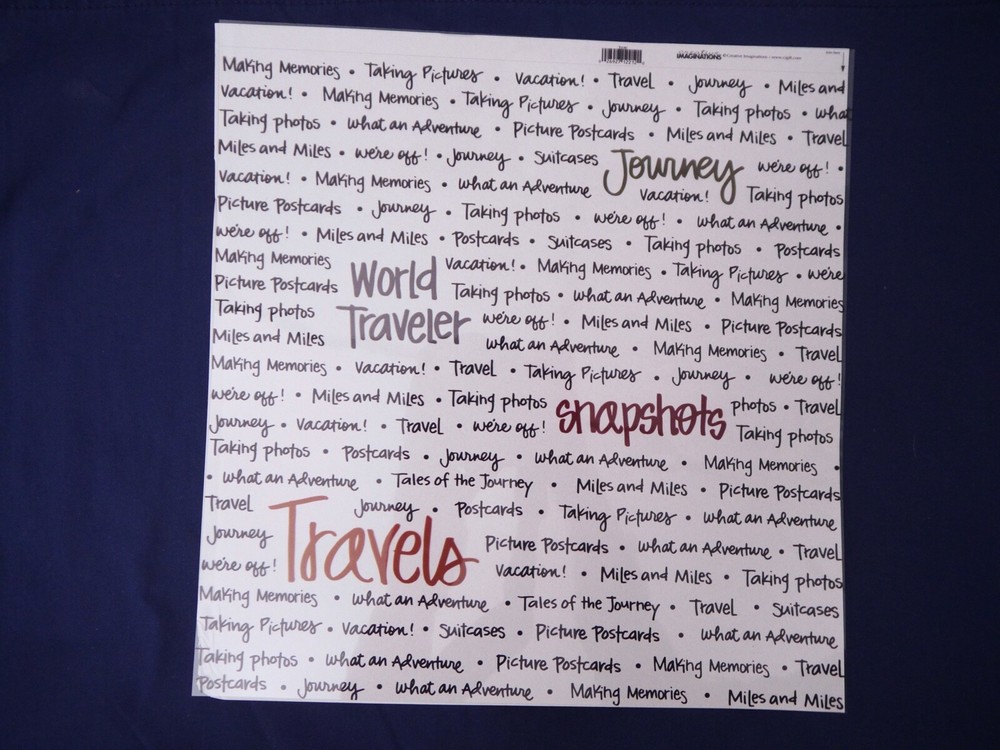 IMAGINATIONS
Making Memories • Taking Pictures • Vacation! • Travel • Journey • Miles and
Vacation! • Making Memories • Taking Pictures • Journey • Taking photos • what
Taking photos • what an Adventure • Picture Postcards • Miles and Miles • Travel
Miles and Miles • we're off! • Journey • Suitcases Journey we're off! •
Vacation! • Making Memories • what an Adventure Vacation! Taking photos
Picture Postcards • Journey • Taking photos • we're off! • what an Adventure •
we're off! • Miles and Miles • Postcards • Suitcases • Taking photos • Postcards
Making Memories World Vacation! • Making Memories • Taking Pictures • we're
Picture Postcards Taking photos • what an Adventure • Making Memories
Taking photos Traveler we're off! • Miles and Miles • Picture Postcards
Miles and Miles what an Adventure • Making Memories • Travel
Making Memories • Vacation! • Travel • Taking Pictures • Journey • we're off!
we're off! • Miles and Miles • Taking photos snapshots photos • Travel
Journey • Vacation! • Travel • we're off! Taking photos
Taking photos • Postcards • Journey • what an Adventure • Making Memories •
• what an Adventure • Tales of the Journey • Miles and Miles • Picture Postcards
Travel Journey • Postcards • Taking Pictures • what an Adventure
Journey Travels Picture Postcards • what an Adventure • Travel
we're off! Vacation! • Miles and Miles • Taking photos
Making Memories • what an Adventure • Tales of the Journey • Travel • Suitcases
Taking Pictures • Vacation! • Suitcases • Picture Postcards • what an Adventure
Taking photos • what an Adventure • Picture Postcards • Making Memories • Travel
Postcards • Journey • what an Adventure • Making Memories • Miles and Miles